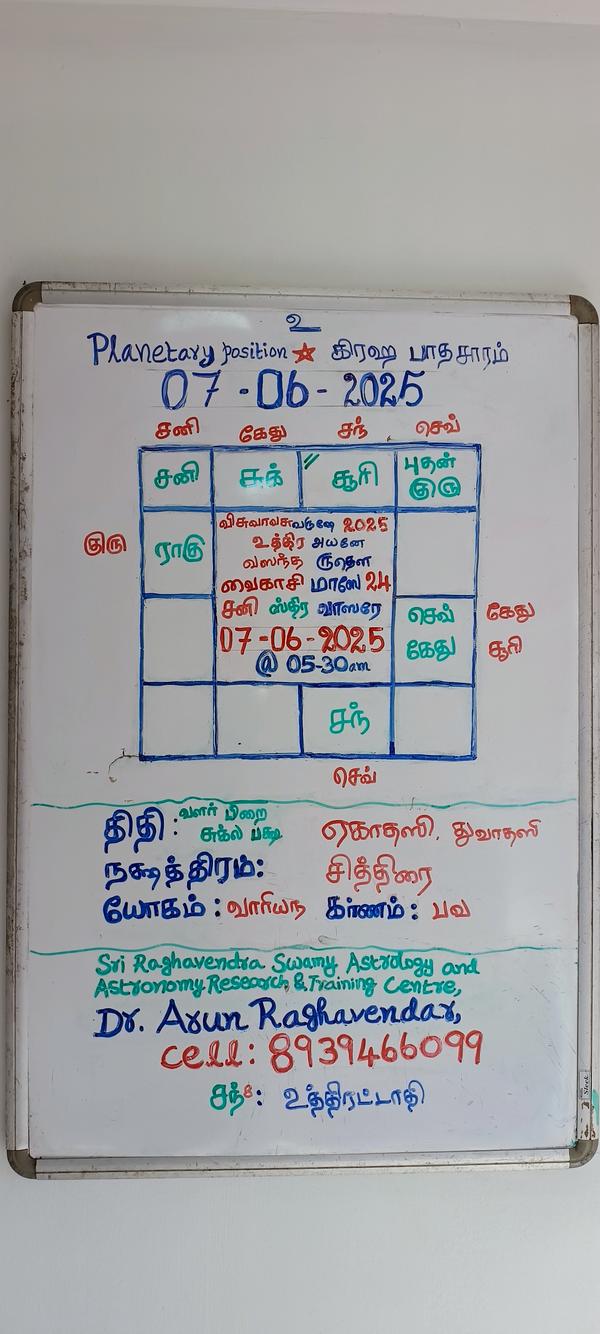 உ
Planetary position ★ கிரஹ பாதசாரம்
07-06-2025
சனி கேது சந் செவ்
சனி சுக் சூரி புதன்
குரு
குரு ராகு
விசுவாவசுவருஷே 2025
உத்திர அயனே
வஸந்த ருதௌ
வைகாசி மாஸே 24
சனி ஸ்திர வாஸரே
07-06-2025
@ 05-30am
செவ் கேது
கேது சூரி
சந்
செவ்
திதி: வளர் பிறை
சுக்ல பக்ஷ ஏகாதஸி. துவாதஸி
நக்ஷத்திரம்: சித்திரை
யோகம்: வாரியந கர்ணம்: பவ
Sri Raghavendra Swamy Astrology and
Astronomy Research & Training Centre,
Dr. Arun Raghavendar,
cell: 8939466099
சந்8: உத்திரட்டாதி